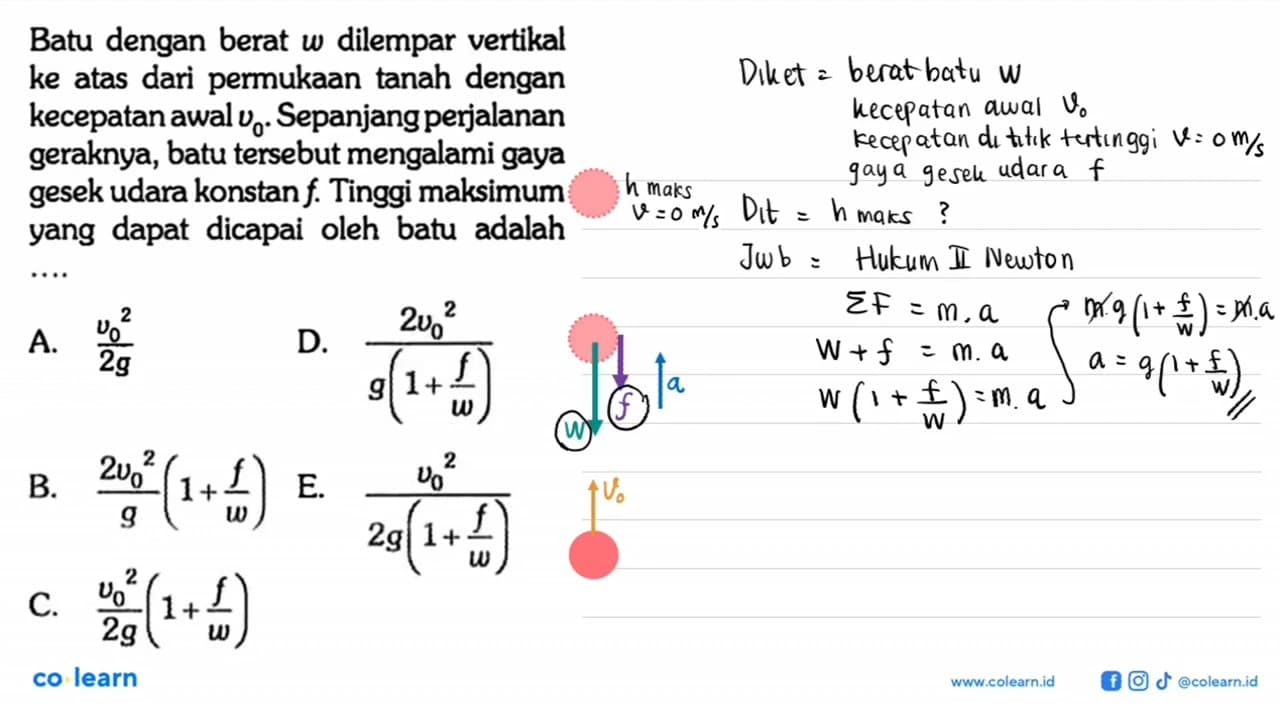 Batu dengan berat w dilempar vertikal
ke atas dari permukaan tanah dengan
kecepatan awal v₀. Sepanjang perjalanan
geraknya, batu tersebut mengalami gaya
gesek udara konstan f. Tinggi maksimum
yang dapat dicapai oleh batu adalah
....
A. v₀²/2g
B. 2v₀²/g (1 + f/w)
C. v₀²/2g (1 + f/w)
D. 2v₀²/g(1 + f/w)
E. v₀²/2g(1 + f/w)
h maks
v = 0 m/s
a
f
W
v₀
Diket = berat batu w
kecepatan awal v₀
kecepatan di titik tertinggi v = 0 m/s
gaya gesek udara f
Dit = h maks ?
Jwb = Hukum II Newton
ΣF = m . a
W + f = m . a
W (1 + f/W) = m . a
m.g (1 + f/W) = m.a
a = g (1 + f/W)//
co learn
www.colearn.id
@colearn.id